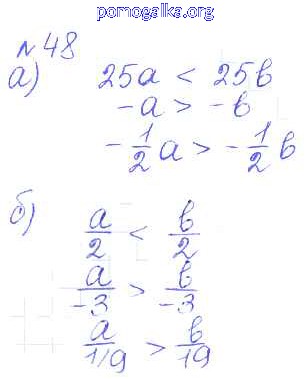 pomogalka.org
№48
а) 25a < 25b
-a > -b
-1/2 a > -1/2 b
б) a/2 < b/2
a/-3 > b/-3
a/1/9 > b/19